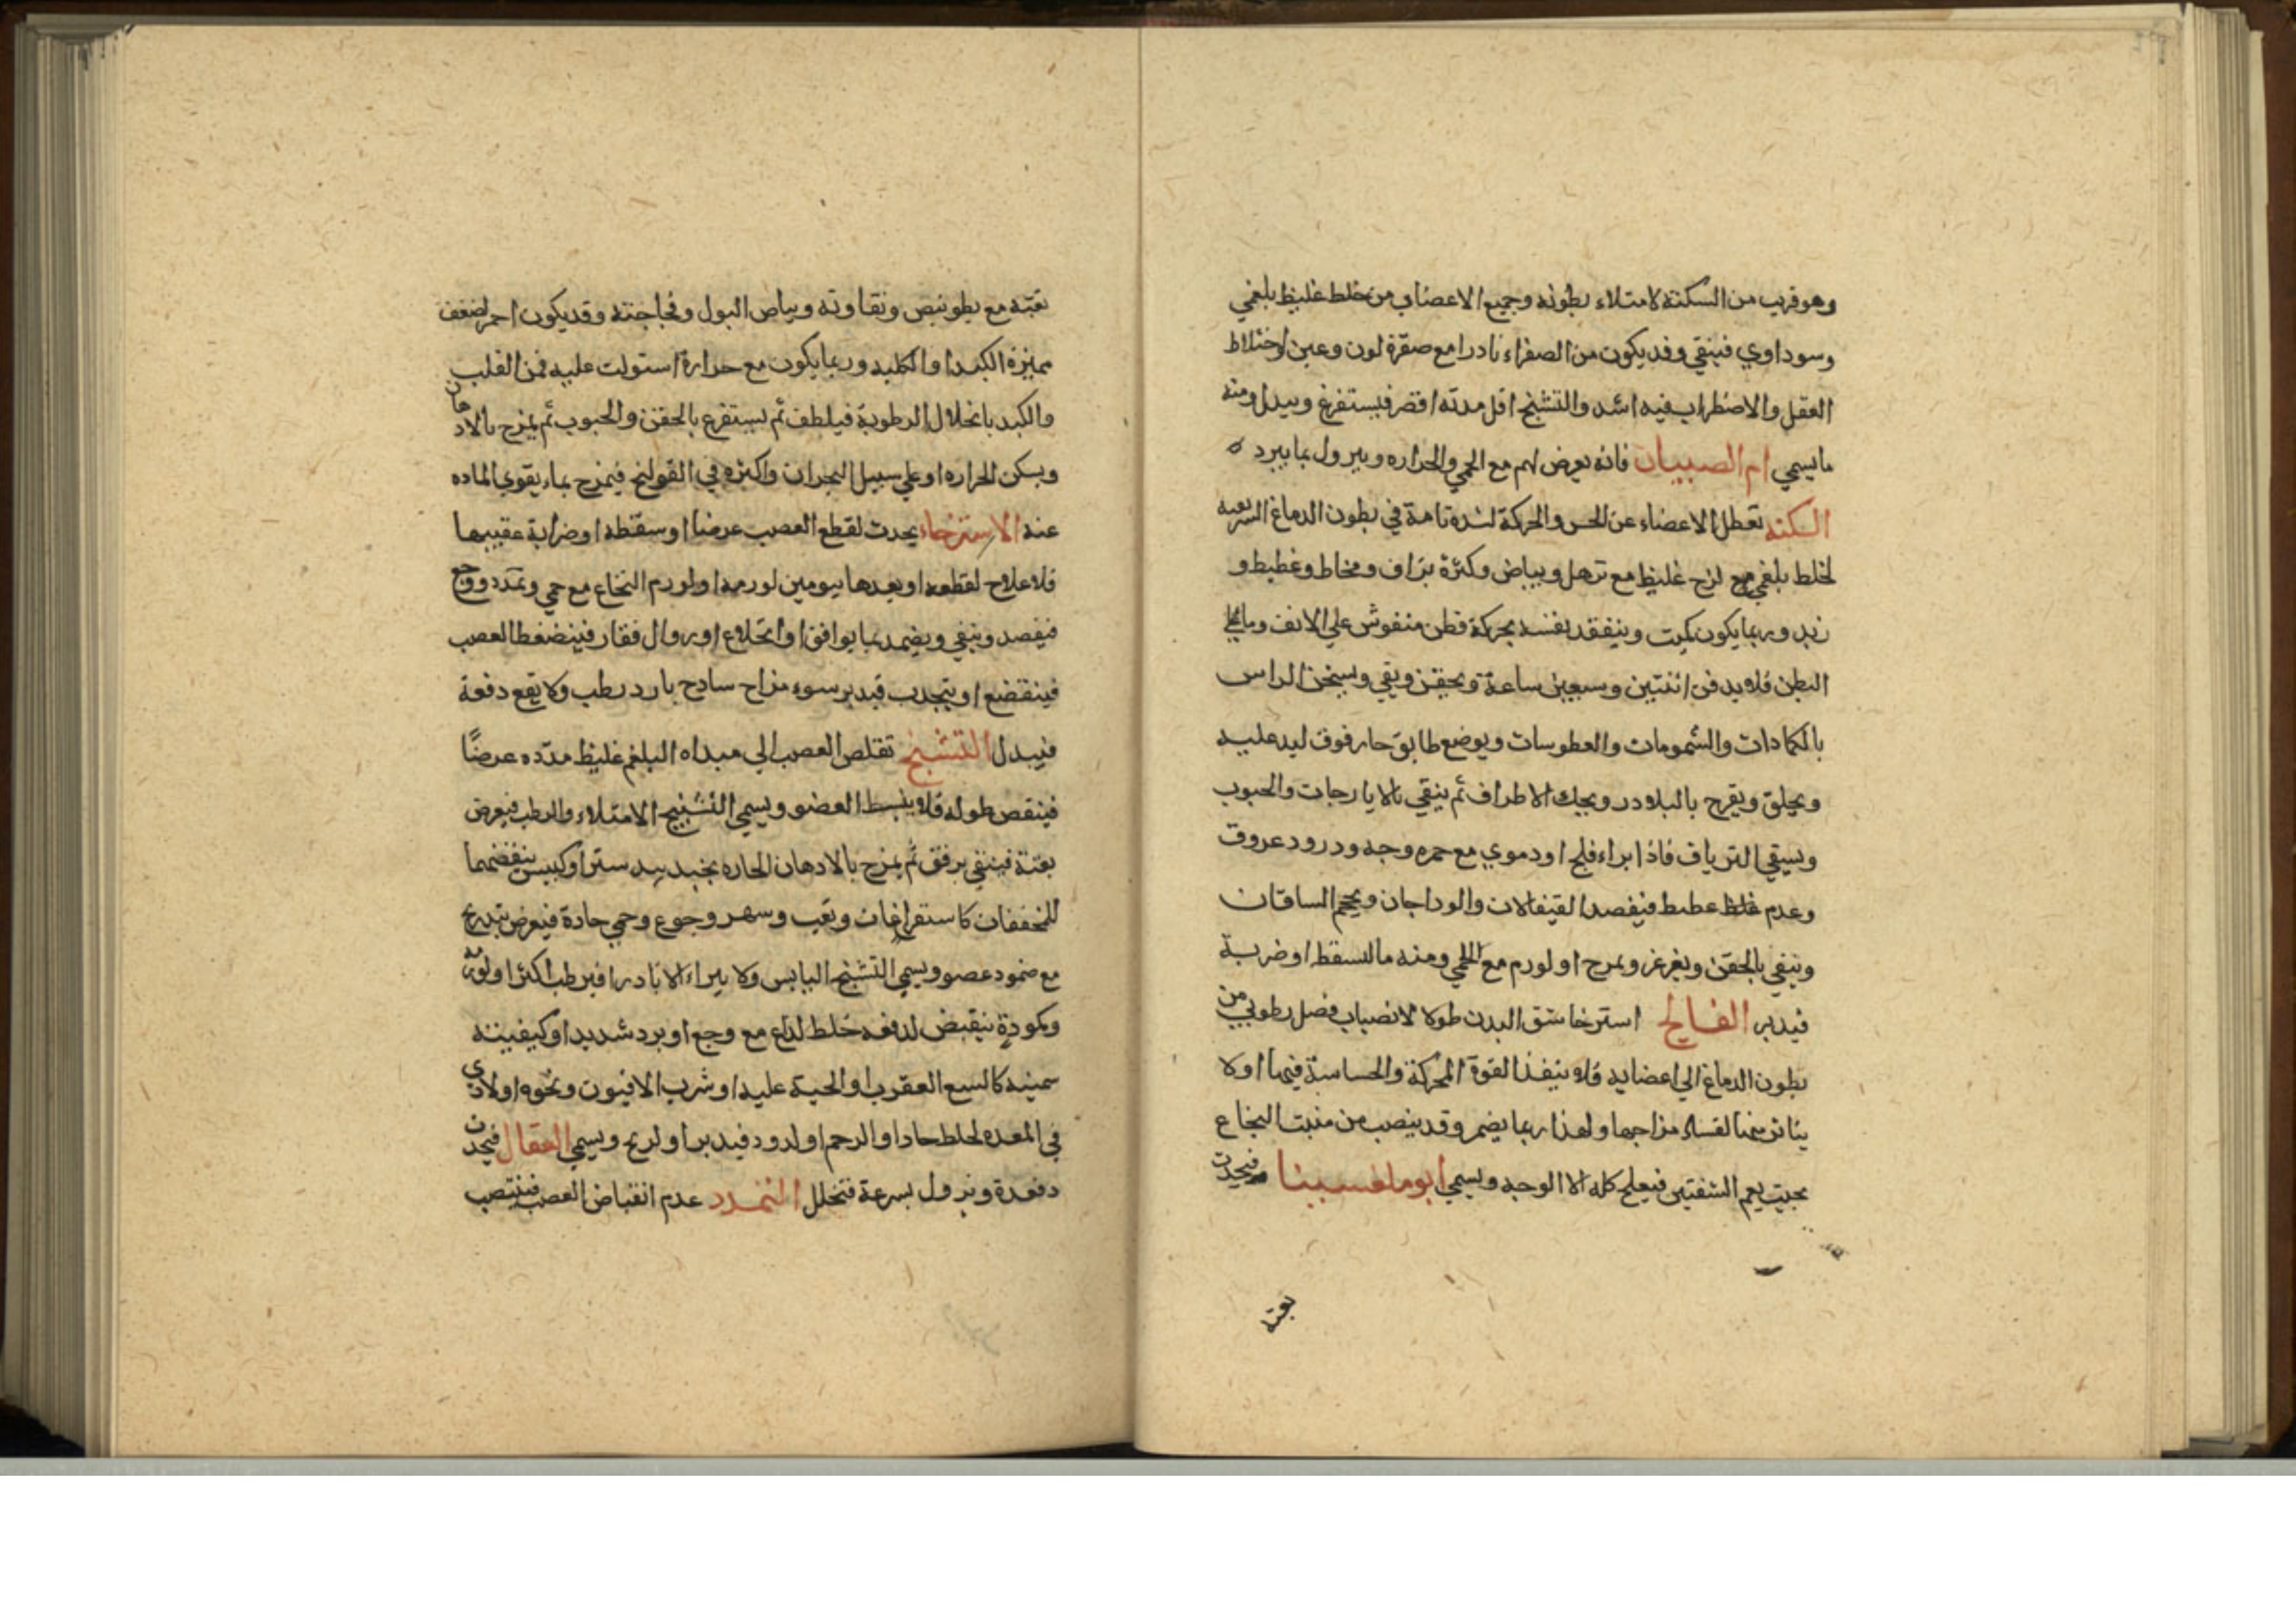 وهو قريب من السكتة لامتلاء بطونه وجميع الاعضاب من خلط غليظ بلغمي
وسوداوي فينقي وقد يكون من الصفراء نادرا مع صفرة لون وعين واختلاط
العقل والاضطراب فيه اشد والتشنج اقل مدته اقصر فيستفرغ ويبدل ومنه
ما يسمي ام الصبيان فانه يعرض لهم مع الحمي والحراره ويزول بما يبرد ه
السكته تعطل الاعضاء عن الحس والحركة لسدة تامة في بطون الدماغ الشريفه
لخلط بلغمي لزج غليظ مع ترهل وبياض وكثرة بزاف ومخاط وغطيط و
زبد وربما يكون كميت ويتفقد بفنسه بحركة قطن منفوش علي الانف وما علي
البطن فلا يدفن اثنتين وسبعين ساعة ويحقن ويقي ويسخن الراس
بالكمادات والشمومات والعطوسات ويوضع طابق حار فوق لبد عليه
ويحلق ويقرح بالبلادر ويحك الاطراف ثم ينقي بالايارجات والحبوب
ويسقي الترياف فاذا براء فلج او دموي مع حمره وجه ودرود عروق
وعدم غلظ عطيط فيفصد القيفالان والوداجان ويحجم الساقان
وينقي بالحقن ويغرغر ويمرح او لورم مع الحمي ومنه ما لسقط او ضربة
فيدبر الفالج استرخا شق البدن طولا لانصباب فضل رطوبي من
بطون الدماغ الي اعضايه فلا ينفذ القوة المحركة والحساسة فيها او لا
يتاثر منها لفساد مزاجها ولهذا ربما يضمر وقد ينصب من منبت النخاع
بحيث يعم الشقتين فيعلج كله الا الوجه ويسمي ابوملفسينا فيحدث
بغتة
بغتة مع بطو نبض وتفاوته وبياض البول وفجاجته وقد يكون احمر لضعف
مميزة الكبد او الكليه وربما يكون مع حرارة استولت عليه فمن القلب
والكبد بانحلال الرطوبة فيلطف ثم يستفرغ بالحقن والحبوب ثم يمرح بالادهان
ويسكن الحراره او علي سبيل البحران واكثره في القولنج فيمرح بماء يقوي الماده
عنه الاسترخاء يحدث لقطع العصب عرضا او سقطه او ضرابة عقيبها
فلا علاج لقطعه او بعدها بيومين لورمه او لورم النخاع مع حمي وتمدد ووجع
فيفصد وينقي ويضمد بما يوافق او انخلاع او زوال فقار فينضغط العصب
فينقضع او يتجدب فيدبر سوء مزاح سادح بارد رطب ولا يقع دفعة
فيبدل التشنج تقلص العصب الي مبداه البلغم غليظ مدده عرضا
فينقص طوله فلا ينبسط العضو ويسمي التشنج الامتلاء والرطب فيعرض
بغتة فينقي برفق ثم يمرح بالادهان الحاره بجند بيد ستر او كيبس ينفضهما
المخففان كاستفراغان وتعب وسهر وجوع وحمي حادة فيعرض بتدريج
مع ضمود عصو ويسمي التشنج اليابس ولا يبراء الا نادرا فيرطب اكثرا
وكمودة ينقبض لدفعه خلط لداع مع وجع او برد شديد او كيفيته
سمنيه كالسع العقرب او الحية عليه او شرب الافيون ونحوه او لاذي
في المعده لخلط حاد او الرحم او لدود فيدبر او لريح ويسمي العقال فيحدث
دفعة ويزول بسرعة فتحلل التمدد عدم انقباض العصب فينتصب